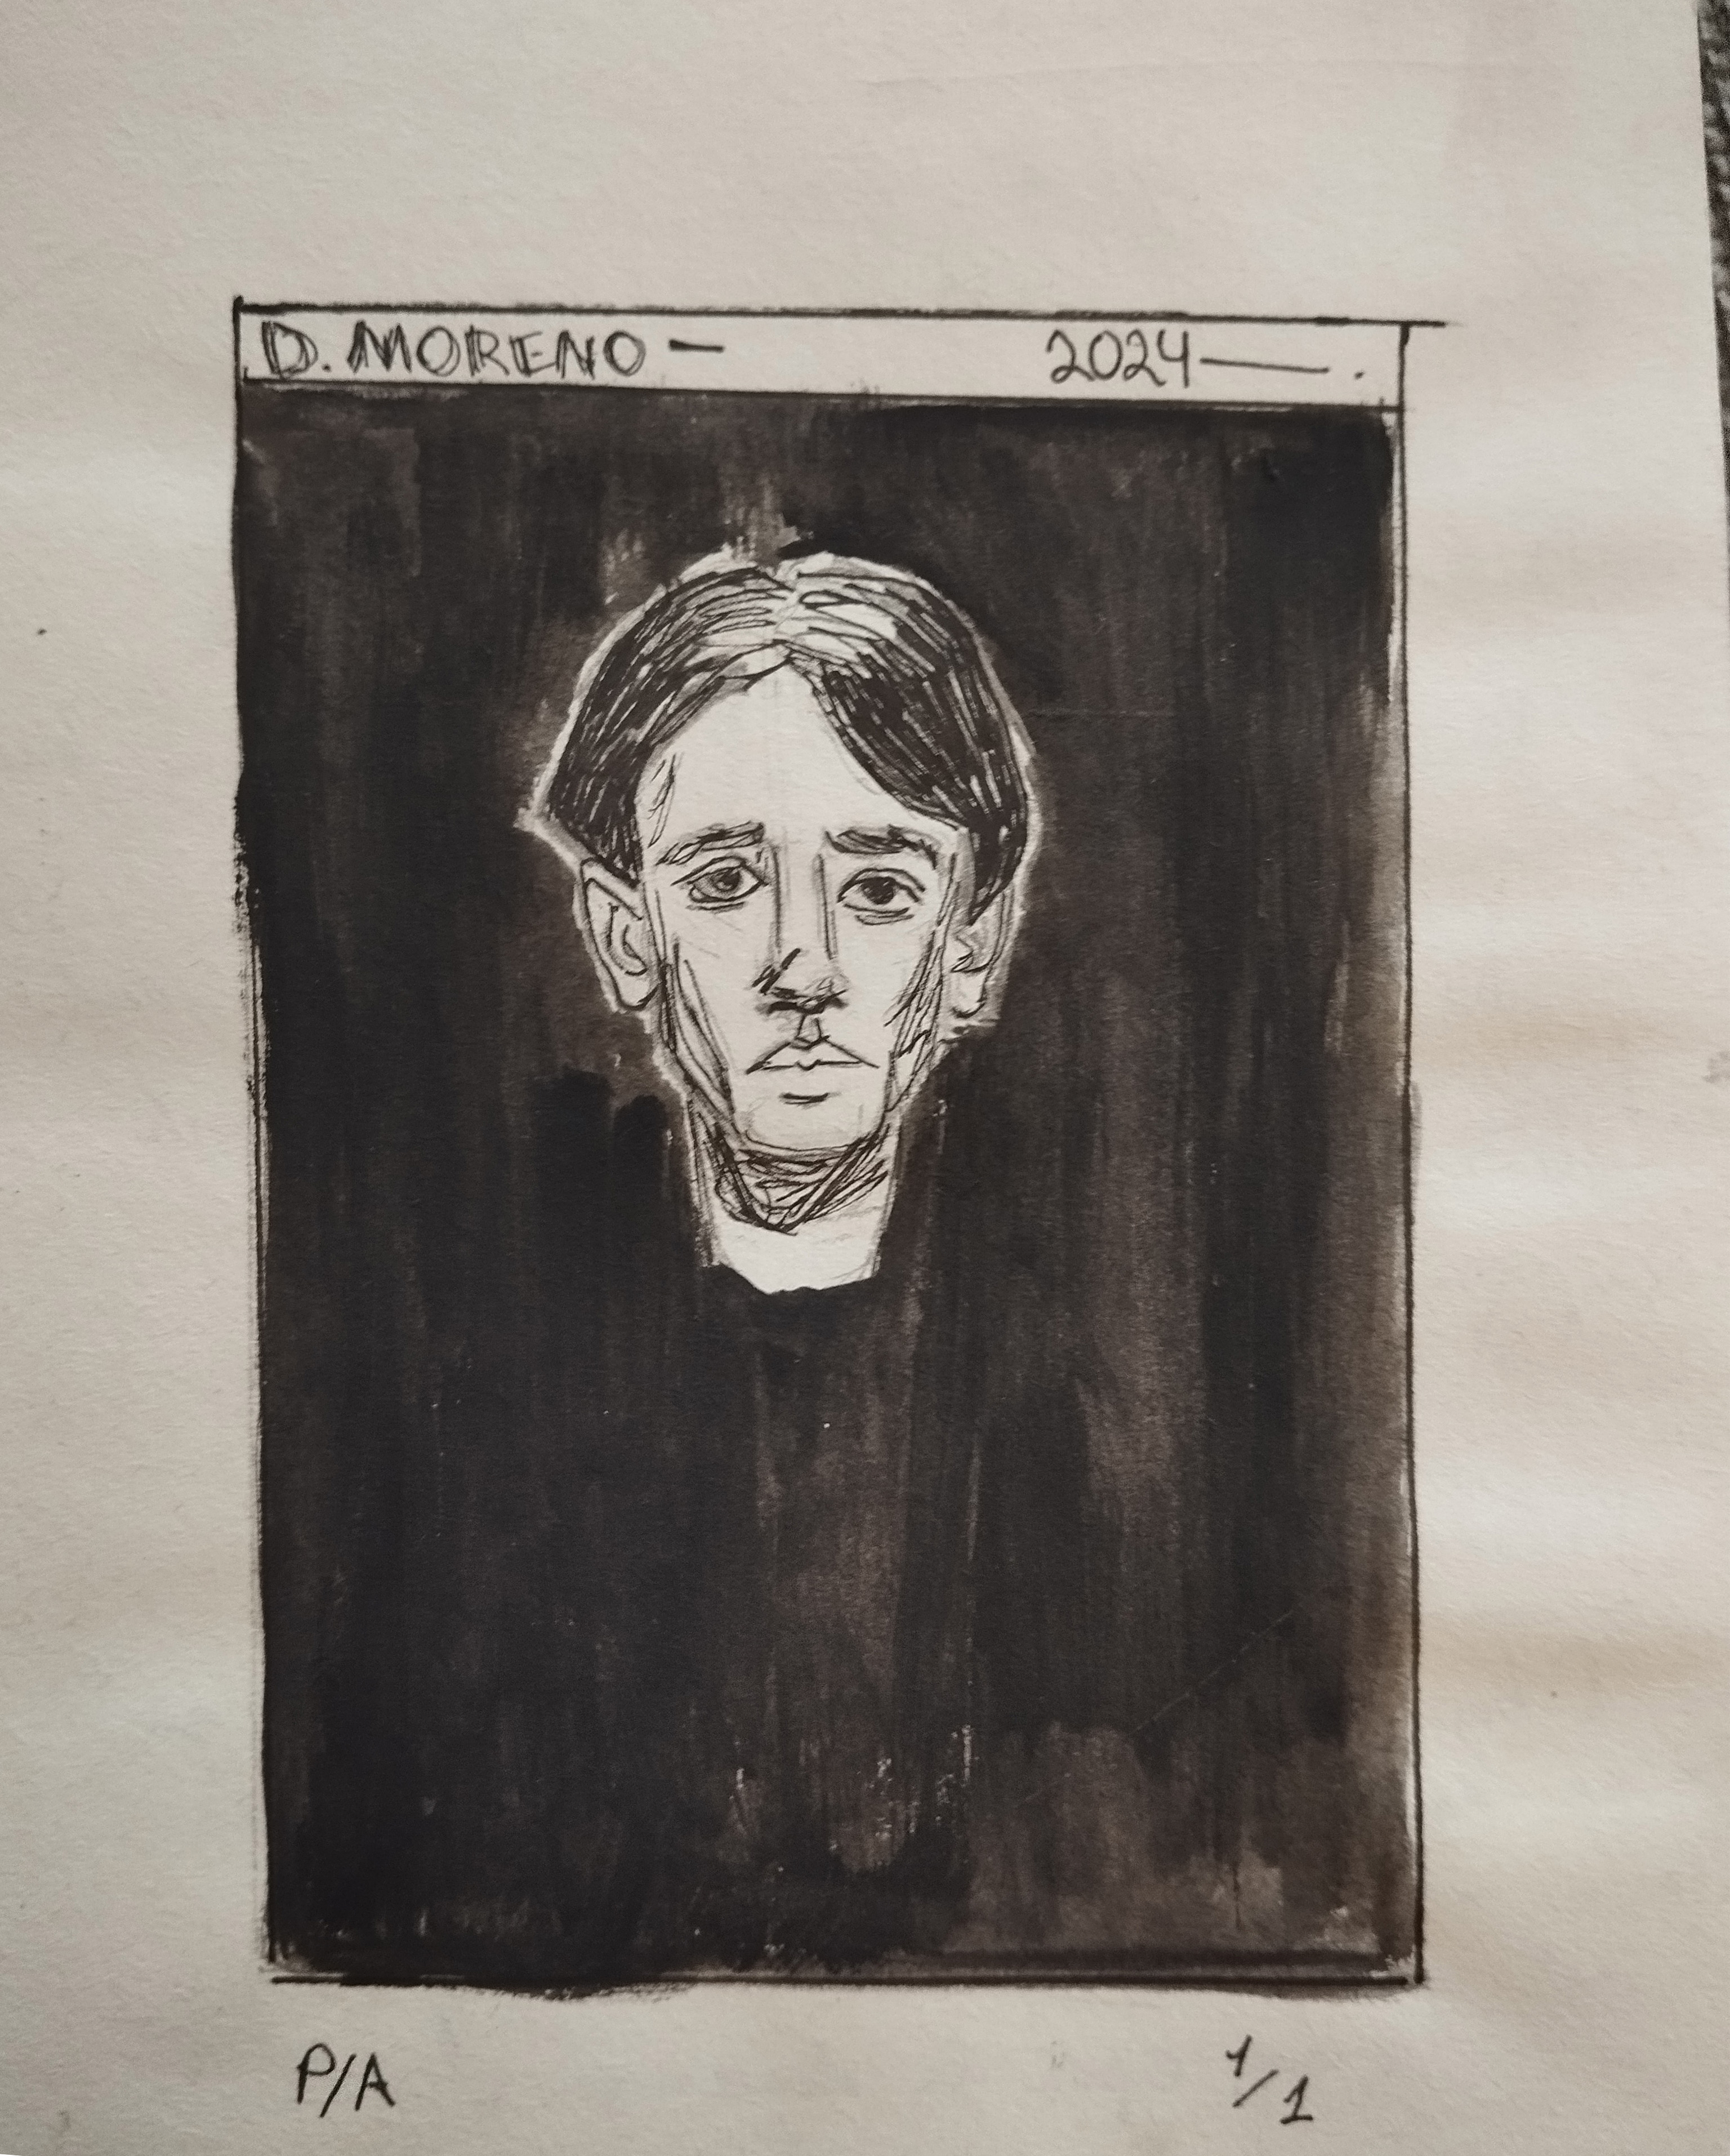 D. MORENO — 2024 —.
P/A 1/1